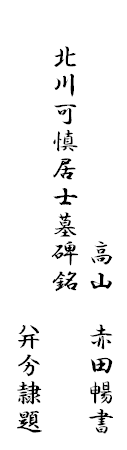 北川可慎居士墓碑銘
高山　赤田暢書
幷分隷題